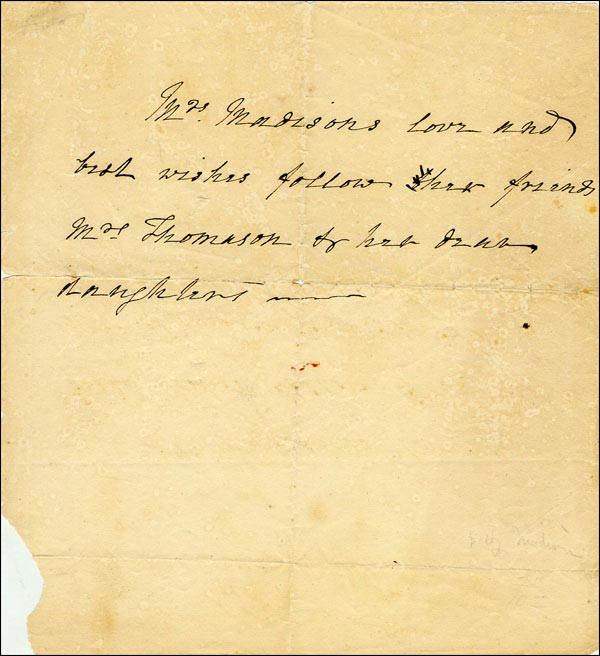 Mrs. Madisons love and
best wishes follow her friend
Mrs Thomason & her dear
daughters
Madison